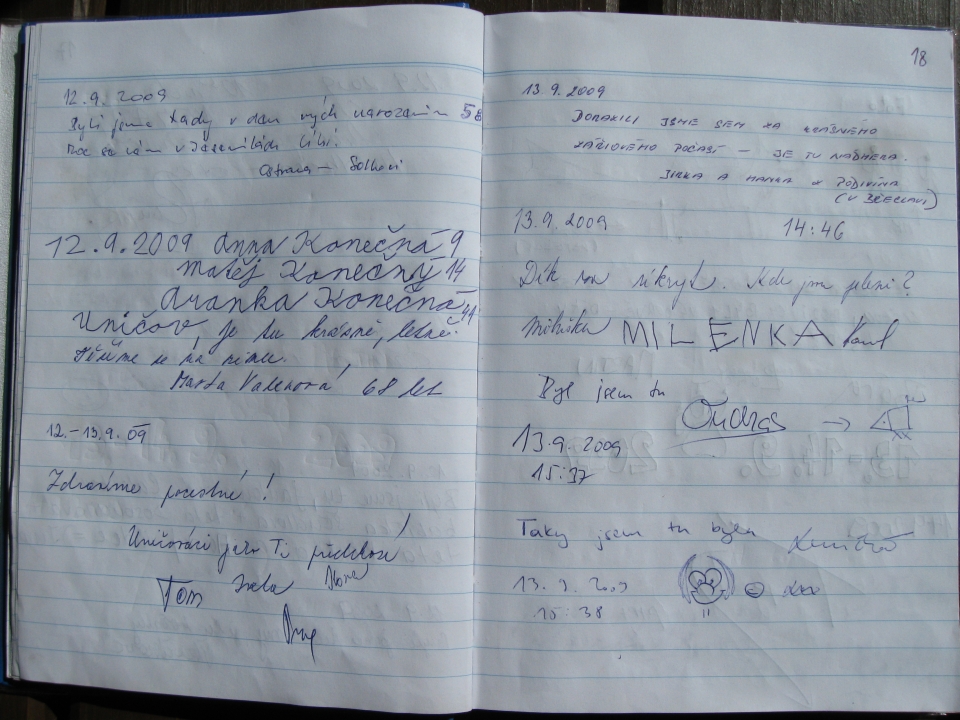 12.9. 2009
Byli jsme tady v den mých narozenin 58
Moc se nám v Jeseníkách líbí.
Ostrava –
12.9.2009 Anna Konečná 9
Matěj Konečný 14
Konečná 41
Uničov, je tu krásně,
Těšíme se na
Marta 68 let
12.–13.9. 09
Zdravíme pocestné!
Uničováci jako Ti předchozí!
Tom
18
13.9.2009
DORAZILI JSME SEM ZA KRÁSNÉHO
ZÁŘIOVÉHO POČASÍ – JE TU NÁDHERA.
JIRKA A HANKA Z PODIVÍNA
(U BŘECLAVI)
13.9.2009 14:46
Dík za úkryt. Kde jsou pleni?
MILENKA
Byl jsem tu
Ondras →
13.9.2009
15:37
Taky jsem tu byla
13.9.2009
15:38